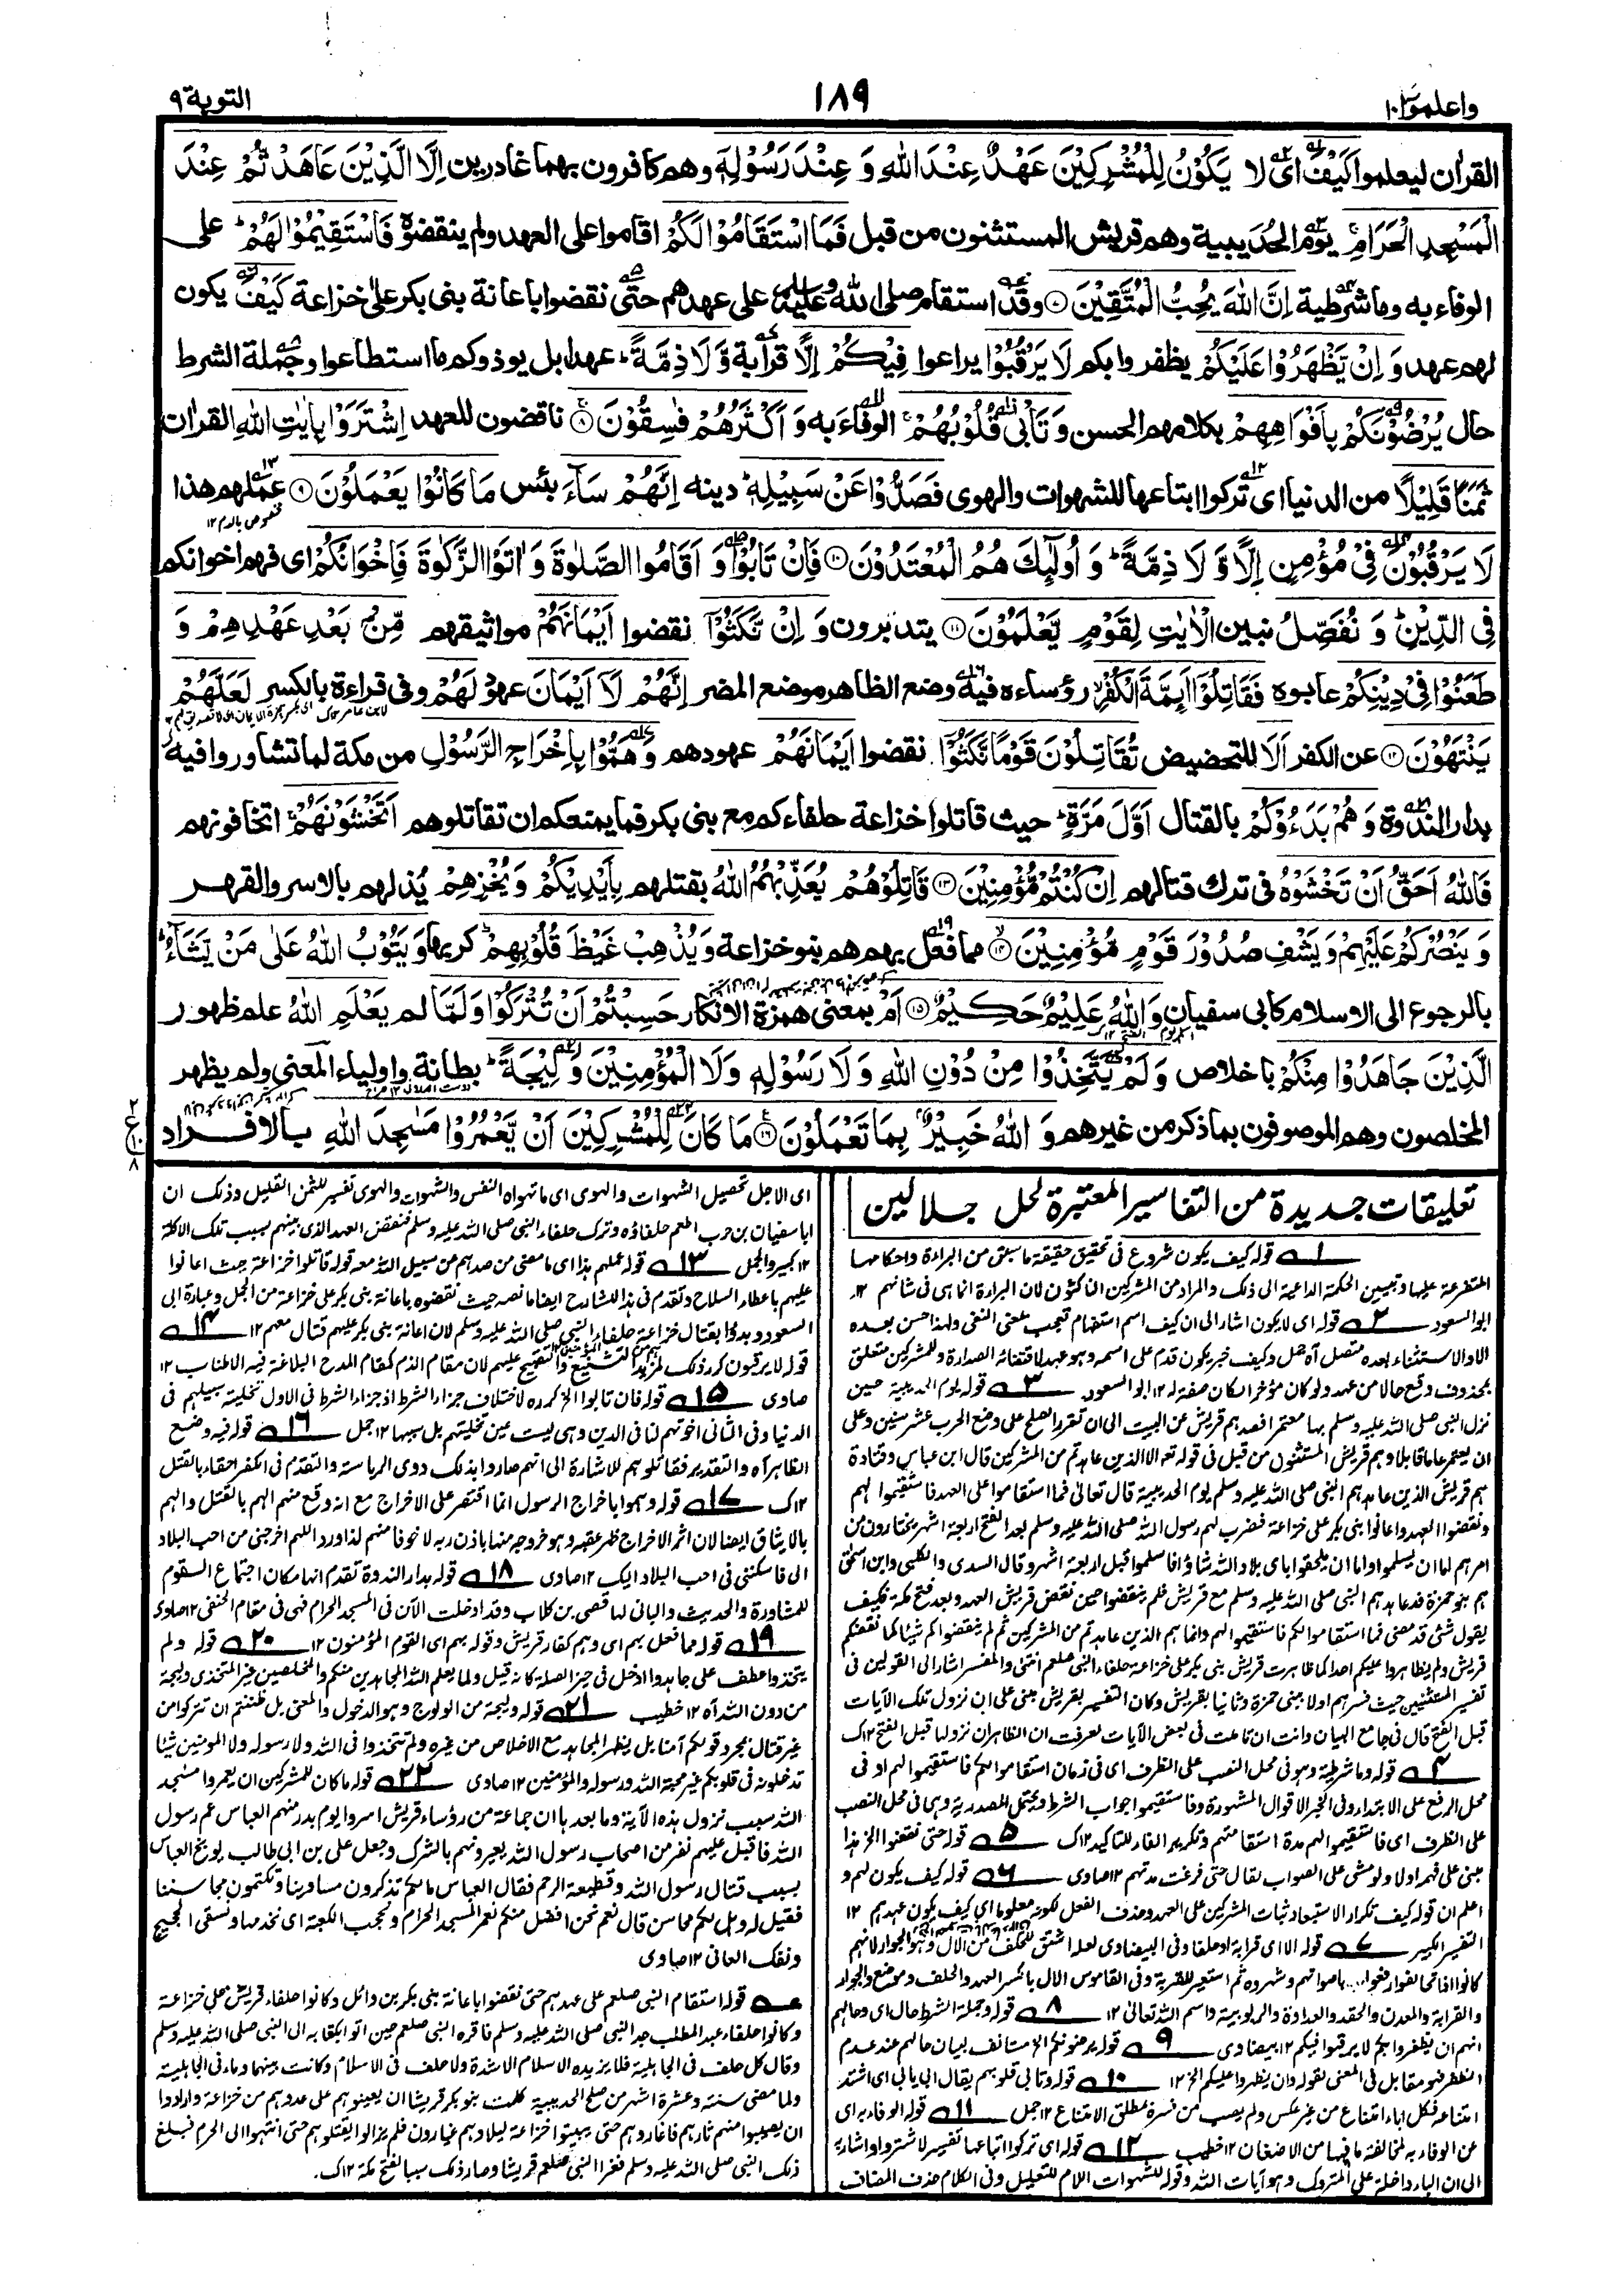 واعلموا ١٠
١٨٩
التوبة ٩
القران ليعلموا كَيْفَ اى لا يَكُوْنُ لِلْمُشْرِكِيْنَ عَهْدٌ عِنْدَ اللّٰهِ وَ عِنْدَ رَسُوْلِهٖٓ وهم كافرون بهما غادرين اِلَّا الَّذِيْنَ عَاهَدْتُّمْ عِنْدَ
الْمَسْجِدِ الْحَرَامِ ۚ يوم الحديبية وهم قريش المستثنون من قبل فَمَا اسْتَقَامُوْا لَكُمْ اقاموا على العهد ولم ينقضوه فَاسْتَقِيْمُوْا لَهُمْ ؕ على
الوفاء به وما شرطية اِنَّ اللّٰهَ يُحِبُّ الْمُتَّقِيْنَ ۝٧ وقد استقام صلى الله عليه وسلم على عهدهم حتى نقضوا باعانة بنى بكر على خزاعة كَيْفَ يكون
لهم عهد وَ اِنْ يَّظْهَرُوْا عَلَيْكُمْ يظفروا بكم لَا يَرْقُبُوْا يراعوا فِيْكُمْ اِلًّا قرابة وَّ لَا ذِمَّةً ؕ عهدا بل يوذوكم ما استطاعوا وجملة الشرط
حال يُرْضُوْنَكُمْ بِاَفْوَاهِهِمْ بكلامهم الحسن وَ تَاْبٰى قُلُوْبُهُمْ ۚ الوفاء به وَ اَكْثَرُهُمْ فٰسِقُوْنَ ۝٨ ناقضون للعهد اِشْتَرَوْا بِاٰيٰتِ اللّٰهِ القران
ثَمَنًا قَلِيْلًا من الدنيا اى تركوا اتباعها للشهوات والهوى فَصَدُّوْا عَنْ سَبِيْلِهٖ ؕ دينه اِنَّهُمْ سَآءَ بئس مَا كَانُوْا يَعْمَلُوْنَ ۝٩ عملهم هذا
لَا يَرْقُبُوْنَ فِيْ مُؤْمِنٍ اِلًّا وَّ لَا ذِمَّةً ؕ وَ اُولٰٓئِكَ هُمُ الْمُعْتَدُوْنَ ۝١٠ فَاِنْ تَابُوْا وَ اَقَامُوا الصَّلٰوةَ وَ اٰتَوُا الزَّكٰوةَ فَاِخْوَانُكُمْ اى فهم اخوانكم
فِي الدِّيْنِ ؕ وَ نُفَصِّلُ نبين الْاٰيٰتِ لِقَوْمٍ يَّعْلَمُوْنَ ۝١١ يتدبرون وَ اِنْ نَّكَثُوْٓا نقضوا اَيْمَانَهُمْ مواثيقهم مِّنْۢ بَعْدِ عَهْدِهِمْ وَ
طَعَنُوْا فِيْ دِيْنِكُمْ عابوه فَقَاتِلُوْٓا اَئِمَّةَ الْكُفْرِ ۙ رؤساءه فيه وضع الظاهر موضع المضر اِنَّهُمْ لَآ اَيْمَانَ عهود لَهُمْ وفى قراءة بالكسر لَعَلَّهُمْ
يَنْتَهُوْنَ ۝١٢ عن الكفر اَلَا للتحضيض تُقَاتِلُوْنَ قَوْمًا نَّكَثُوْٓا نقضوا اَيْمَانَهُمْ عهودهم وَ هَمُّوْا بِاِخْرَاجِ الرَّسُوْلِ من مكة لما تشاوروا فيه
بدار الندوة وَ هُمْ بَدَءُوْكُمْ بالقتال اَوَّلَ مَرَّةٍ ؕ حيث قاتلوا خزاعة حلفاءكم مع بنى بكر فما يمنعكم ان تقاتلوهم اَتَخْشَوْنَهُمْ ۚ اتخافونهم
فَاللّٰهُ اَحَقُّ اَنْ تَخْشَوْهُ فى ترك قتالهم اِنْ كُنْتُمْ مُّؤْمِنِيْنَ ۝١٣ قَاتِلُوْهُمْ يُعَذِّبْهُمُ اللّٰهُ بقتلهم بِاَيْدِيْكُمْ وَ يُخْزِهِمْ يذلهم بالاسر والقهر
وَ يَنْصُرْكُمْ عَلَيْهِمْ وَ يَشْفِ صُدُوْرَ قَوْمٍ مُّؤْمِنِيْنَ ۝١٤ مما فعل بهم هم بنو خزاعة وَ يُذْهِبْ غَيْظَ قُلُوْبِهِمْ ؕ كربها وَ يَتُوْبُ اللّٰهُ عَلٰى مَنْ يَّشَآءُ ؕ
بالرجوع الى الاسلام كابى سفيان وَ اللّٰهُ عَلِيْمٌ حَكِيْمٌ ۝١٥ اَمْ بمعنى همزة الانكار حَسِبْتُمْ اَنْ تُتْرَكُوْا وَ لَمَّا لم يَعْلَمِ اللّٰهُ علم ظهور
الَّذِيْنَ جَاهَدُوْا مِنْكُمْ باخلاص وَ لَمْ يَتَّخِذُوْا مِنْ دُوْنِ اللّٰهِ وَ لَا رَسُوْلِهٖ وَ لَا الْمُؤْمِنِيْنَ وَلِيْجَةً ؕ بطانة واولياء المعنى ولم يظهر
المخلصون وهم الموصوفون بما ذكر من غيرهم وَ اللّٰهُ خَبِيْرٌۢ بِمَا تَعْمَلُوْنَ ۝١٦ مَا كَانَ لِلْمُشْرِكِيْنَ اَنْ يَّعْمُرُوْا مَسٰجِدَ اللّٰهِ بالافراد
تعليقات جديدة من التفاسير المعتبرة لحل جلالين
١ قوله كيف يكون شروع فى تحقيق حقيقة ما سبق من البراءة واحكامها
المتفرعة عليها وتبيين الحكمة الداعية الى ذلك والمراد من المشركين الناكثون لان البراءة انما هى فى شانهم ١٢
ابو السعود ٢ قوله اى لا يكون اشار الى ان كيف اسم استفهام تعجب بمعنى النفى ولهذا حسن بعده
الا والاستثناء بعده متصل اه جمل وكيف خبر يكون قدم على اسمه وهو عهد لاقتضائه الصدارة وللمشركين متعلق
بمحذوف وقع حالا من عهد ولو كان مؤخرا لكان صفة له ١٢ ابو السعود ٣ قوله يوم الحديبية حين
نزل النبى صلى الله عليه وسلم بها معتمرا فصدهم قريش عن البيت الى ان تقرر الصلح على وضع الحرب عشر سنين وعلى
ان يعتمر عاما قابلا وهم قريش المستثنون من قبل فى قوله تعالى الا الذين عاهدتم من المشركين قال ابن عباس وقتادة
هم قريش الذين عاهدهم النبى صلى الله عليه وسلم يوم الحديبية قال تعالى فما استقاموا على العهد فاستقيموا لهم
ونقضوا العهد واعانوا بنى بكر على خزاعة فضرب لهم رسول الله صلى الله عليه وسلم بعد الفتح اربعة اشهر يختارون من
امرهم اما ان يسلموا واما ان يلحقوا باى بلاد الله شاؤا فاسلموا قبل اربعة اشهر وقال السدى والكلبى وابن اسحق
هم بنو حمزة فدعاهدهم النبى صلى الله عليه وسلم مع قريش فلم ينقضوا حين نقض قريش العهد وبعد فتح مكة فكيف
يقول شئ قد مضى فما استقاموا لكم فاستقيموا لهم وانما هم الذين عاهدتم من المشركين ثم لم ينقضوكم شيئا كما نقضكم
قريش ولم يظاهروا عليكم احدا كما ظاهرت قريش بنى بكر على خزاعة حلفاء النبى صلعم انتهى والمفسر اشار الى القولين فى
تفسير المستثنين حيث فسرهم اولا ببنى حمزة وثانيا بقريش وكان التفسير بقريش مبنى على ان نزول تلك الآيات
قبل الفتح قال فى جامع البيان وانت ان تاملت فى بعض الآيات لعرفت ان الظاهر ان نزولها قبل الفتح ١٢ك
٤ قوله وما شرطية وهو فى محل النصب على الظرف اى فى زمان استقاموا لكم فاستقيموا لهم او فى
محل الرفع على الابتداء وفى الخبر الاقوال المشهورة وفاستقيموا جواب الشرط ويحتمل المصدرية وهى فى محل النصب
على الظرف اى فاستقيموا لهم مدة استقامتهم وتكرير الفاء للتاكيد ١٢ك ٥ قوله حتى نقضوا الخ هذا
مبنى على فهم اولا ولو مشى على الصواب لقال حتى فرغت مدتهم ١٢صاوى ٦ قوله كيف يكون لهم و
اعلم ان قوله كيف تكرار لاستبعاد ثبات المشركين على العهد وحذف الفعل لكونه معلوما اى كيف يكون عهدهم ١٢
التفسير الكبير ٧ قوله الا اى قرابة او حلفا وفى البيضاوى لعله اشتق للحلف من الال وهو الجوار لانهم
كانوا اذا تحالفوا رفعوا به اصواتهم وشهروه ثم استعير للقربة وفى القاموس الال بالكسر العهد والحلف وموضع والجوار
والقرابة والمعدن والحقد والعداوة والربوبية واسم الله تعالى ١٢ ٨ قوله وجملة الشرط حال اى وحالهم
انهم ان يظفروا بكم لا يرقبوا فيكم ١٢ بيضاوى ٩ قوله يرضونكم الخ مستانف لبيان حالهم عند عدم
الظفر فهو مقابل فى المعنى بقوله وان يظهروا عليكم الخ ١٢ ١٠ قوله وتابى قلوبهم يقال ابى يابى اى اشتد
امتناعه فكل اباء امتناع من غير عكس ولم يصب من فسره بمطلق الامتناع ١٢ جمل ١١ قوله الوفاء به اى
عن الوفاء به لمخالفة ما فيها من الاضغان ١٢ خطيب ١٢ قوله اى تركوا اتباعها تفسير لاشتروا واشار به
الى ان الباء داخلة على المتروك وهو آيات الله وقوله للشهوات اللام للتعليل وفى الكلام حذف المضاف
اى لاجل تحصيل الشهوات والهوى اى ما تهواه النفس والشهوات والهوى تفسير للثمن القليل وذلك ان
ابا سفيان بن حرب اطعم حلفاؤه وترك حلفاء النبى صلى الله عليه وسلم فنقض العهد الذى بينهم بسبب تلك الاكلة
١٢ كبير والجمل ١٣ قوله عملهم هذا اى ما مضى من صدهم عن سبيل الله معه قوله قاتلوا خزاعة حيث اعانوا
عليهم باعطاء السلاح وتقدم فى هذا للشارح ايضا ما نصه حيث نقضوه باعانة بنى بكر على خزاعة من الجمل وعبارة ابى
السعود وبدؤا بقتال خزاعة حلفاء النبى صلى الله عليه وسلم لان اعانة بنى بكر عليهم قتال معهم ١٢ ١٤
قوله لا يرقبون كرر ذلك لمزيد التشنيع والتقبيح عليهم لان مقام الذم كمقام المدح البلاغة فيه الاطناب ١٢
صاوى ١٥ قوله فان تابوا الخ كرره لاختلاف جزاء الشرط اذ جزاء الشرط فى الاول تخلية سبيلهم فى
الدنيا وفى الثانى اخوتهم لنا فى الدين وهى ليست عين تخليتهم بل سببها ١٢ جمل ١٦ قوله فيه وضع
الظاهر اه والتقدير فقاتلوهم للاشارة الى انهم صاروا بذلك ذوى الرياسة والتقدم فى الكفر احقاء بالقتل
١٢ك ١٧ قوله وهموا باخراج الرسول انما اقتصر على الاخراج مع انه وقع منهم الهم بالقتل والهم
بالايثاق ايضا لان اثر الاخراج ظهر عقبه وهو خروجه منها باذن ربه لا خوفا منهم لذا ورد اللهم اخرجتنى من احب البلاد
الى فاسكنى فى احب البلاد اليك ١٢صاوى ١٨ قوله بدار الندوة تقدم انها مكان اجتماع القوم
للمشاورة والحديث والبانى لها قصى بن كلاب وقد ادخلت الآن فى المسجد الحرام فهى فى مقام الحنفى ١٢صاوى
١٩ قوله مما فعل بهم اى وهم كفار قريش وقوله بهم اى القوم المؤمنون ١٢ ٢٠ قوله ولم
يتخذوا عطف على جاهدوا داخل فى حيز الصلة كانه قيل ولما يعلم الله المجاهدين منكم والمخلصين غير المتخذى وليجة
من دون الله اه ١٢ خطيب ٢١ قوله وليجة من الولوج وهو الدخول والمعنى بل ظننتم ان تتركوا من
غير قتال بمجرد قولكم آمنا بل يظهر المجاهد مع الاخلاص من غيره ولم تتخذوا فى الله ولا رسوله ولا المومنين شيئا
تدخلونه فى قلوبكم غير محبة الله ورسوله والمؤمنين ١٢ صاوى ٢٢ قوله ما كان للمشركين ان يعمروا مسجد
الله سبب نزول هذه الآية وما بعدها ان جماعة من رؤساء قريش اسروا يوم بدر منهم العباس عم رسول
الله فاقبل عليهم نفر من اصحاب رسول الله يعيرونهم بالشرك وجعل على بن ابى طالب يوبخ العباس
بسبب قتال رسول الله وقطيعة الرحم فقال العباس ما لكم تذكرون مساوينا وتكتمون محاسننا
فقيل له وهل لكم محاسن قال نعم نحن افضل منكم نعمر المسجد الحرام ونحجب الكعبة اى نخدمها ونسقى الحجيج
ونفك العانى ١٢ صاوى
قوله استقام النبى صلعم على عهدهم حتى نقضوا باعانة بنى بكر بن وائل وكانوا حلفاء قريش على خزاعة
وكانوا حلفاء عبد المطلب جد النبى صلى الله عليه وسلم فاقره النبى صلعم حين اتوا بكتابه الى النبى صلى الله عليه وسلم
وقال كل حلف فى الجاهلية فلا يزيده الاسلام الا شدة ولا حلف فى الاسلام وكانت بينهما دماء فى الجاهلية
ولما مضى سنة وعشرة اشهر من صلح الحديبية كلمت بنو بكر قريشا ان يعينوهم على عدوهم من خزاعة وارادوا
ان يصيبوا منهم ثارهم فاغاروهم حتى يبيتوا خزاعة ليلا وهم غيارون فلم يزالوا يقتلوهم حتى انتهوا الى الحرم فبلغ
ذلك النبى صلى الله عليه وسلم فغزا النبى صلعم قريشا وصار ذلك سببا لفتح مكة ١٢ك